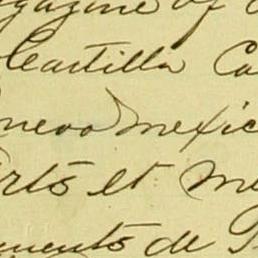 gazine of
Castilla Ca
nuevo mexic
rts et me
ments de